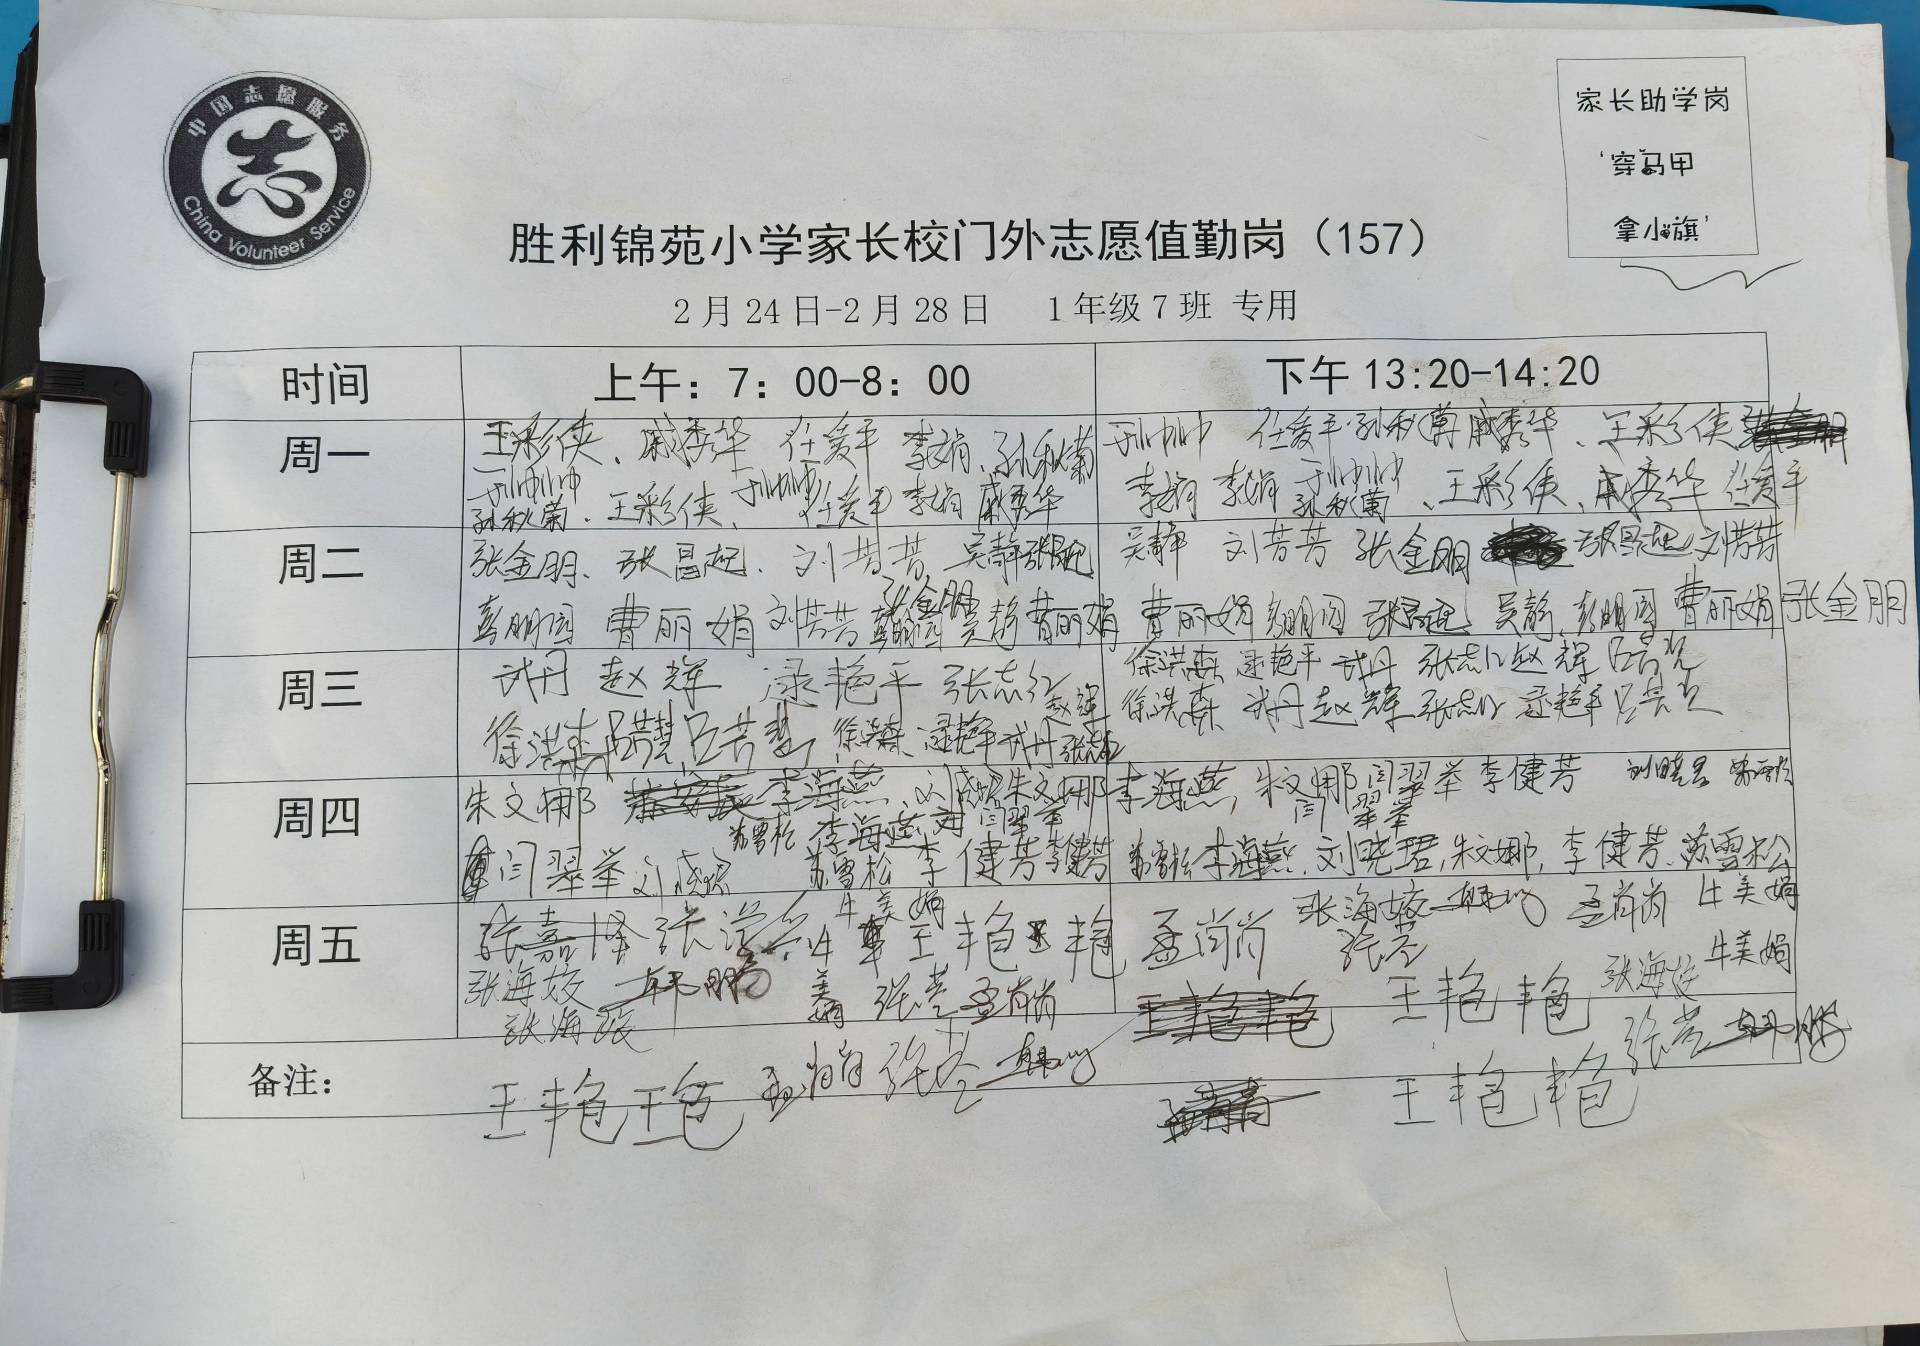 中国志愿服务
志
China Volunteer Service
家长助学岗
'穿马甲
拿小旗'
胜利锦苑小学家长校门外志愿值勤岗（157）
2月24日-2月28日 1年级7班 专用
时间 上午：7：00-8：00 下午13:20-14:20
周一 王彩侠、戚秀华 任爱平 李娟、孙秋菊 孙帅帅 任爱平·孙秋菊 戚秀华、王彩侠
孙帅帅 孙帅帅 孙帅帅
孙秋菊、王彩侠、任爱平 李娟 戚秀华 李娟 李娟 孙秋菊、王彩侠、戚秀华 任爱平
周二 张金朋、张昌起 刘芳芳 吴静 张昌起 吴静 刘芳芳 张金朋 张昌起 刘芳芳
张金朋
彭明园 曹丽娟 刘芳芳 彭明园 吴静 曹丽娟 曹丽娟 彭明园 张昌起 吴静、彭明园 曹丽娟 张金朋
周三 武丹 赵辉 逯艳平 张志红 徐洪森 逯艳平 武丹 张志红 赵辉
赵辉
徐洪森 徐洪森 逯艳平 武丹 张志红 徐洪森 武丹 赵辉 张志红 逯艳平
周四 朱文娜 李海燕、朱文娜 李海燕, 朱文娜 闫翠举 李健芳 刘晓君
苏雪松 李海燕 闫翠举 闫翠举
闫翠举 苏雪松 李健芳 李健芳 苏雪松 李海燕、刘晓珺, 朱文娜, 李健芳、苏雪松
周五 牛美娟 张海姣 孟肖肖 牛美娟
张嘉怿 王艳艳 孟肖肖 张荟
张海姣 韩鹏 美娟 张荟 孟肖肖 王艳艳 张海姣 牛美娟
张海姣 张荟 韩鹏
备注： 王艳艳 孟肖肖 张荟 王艳艳